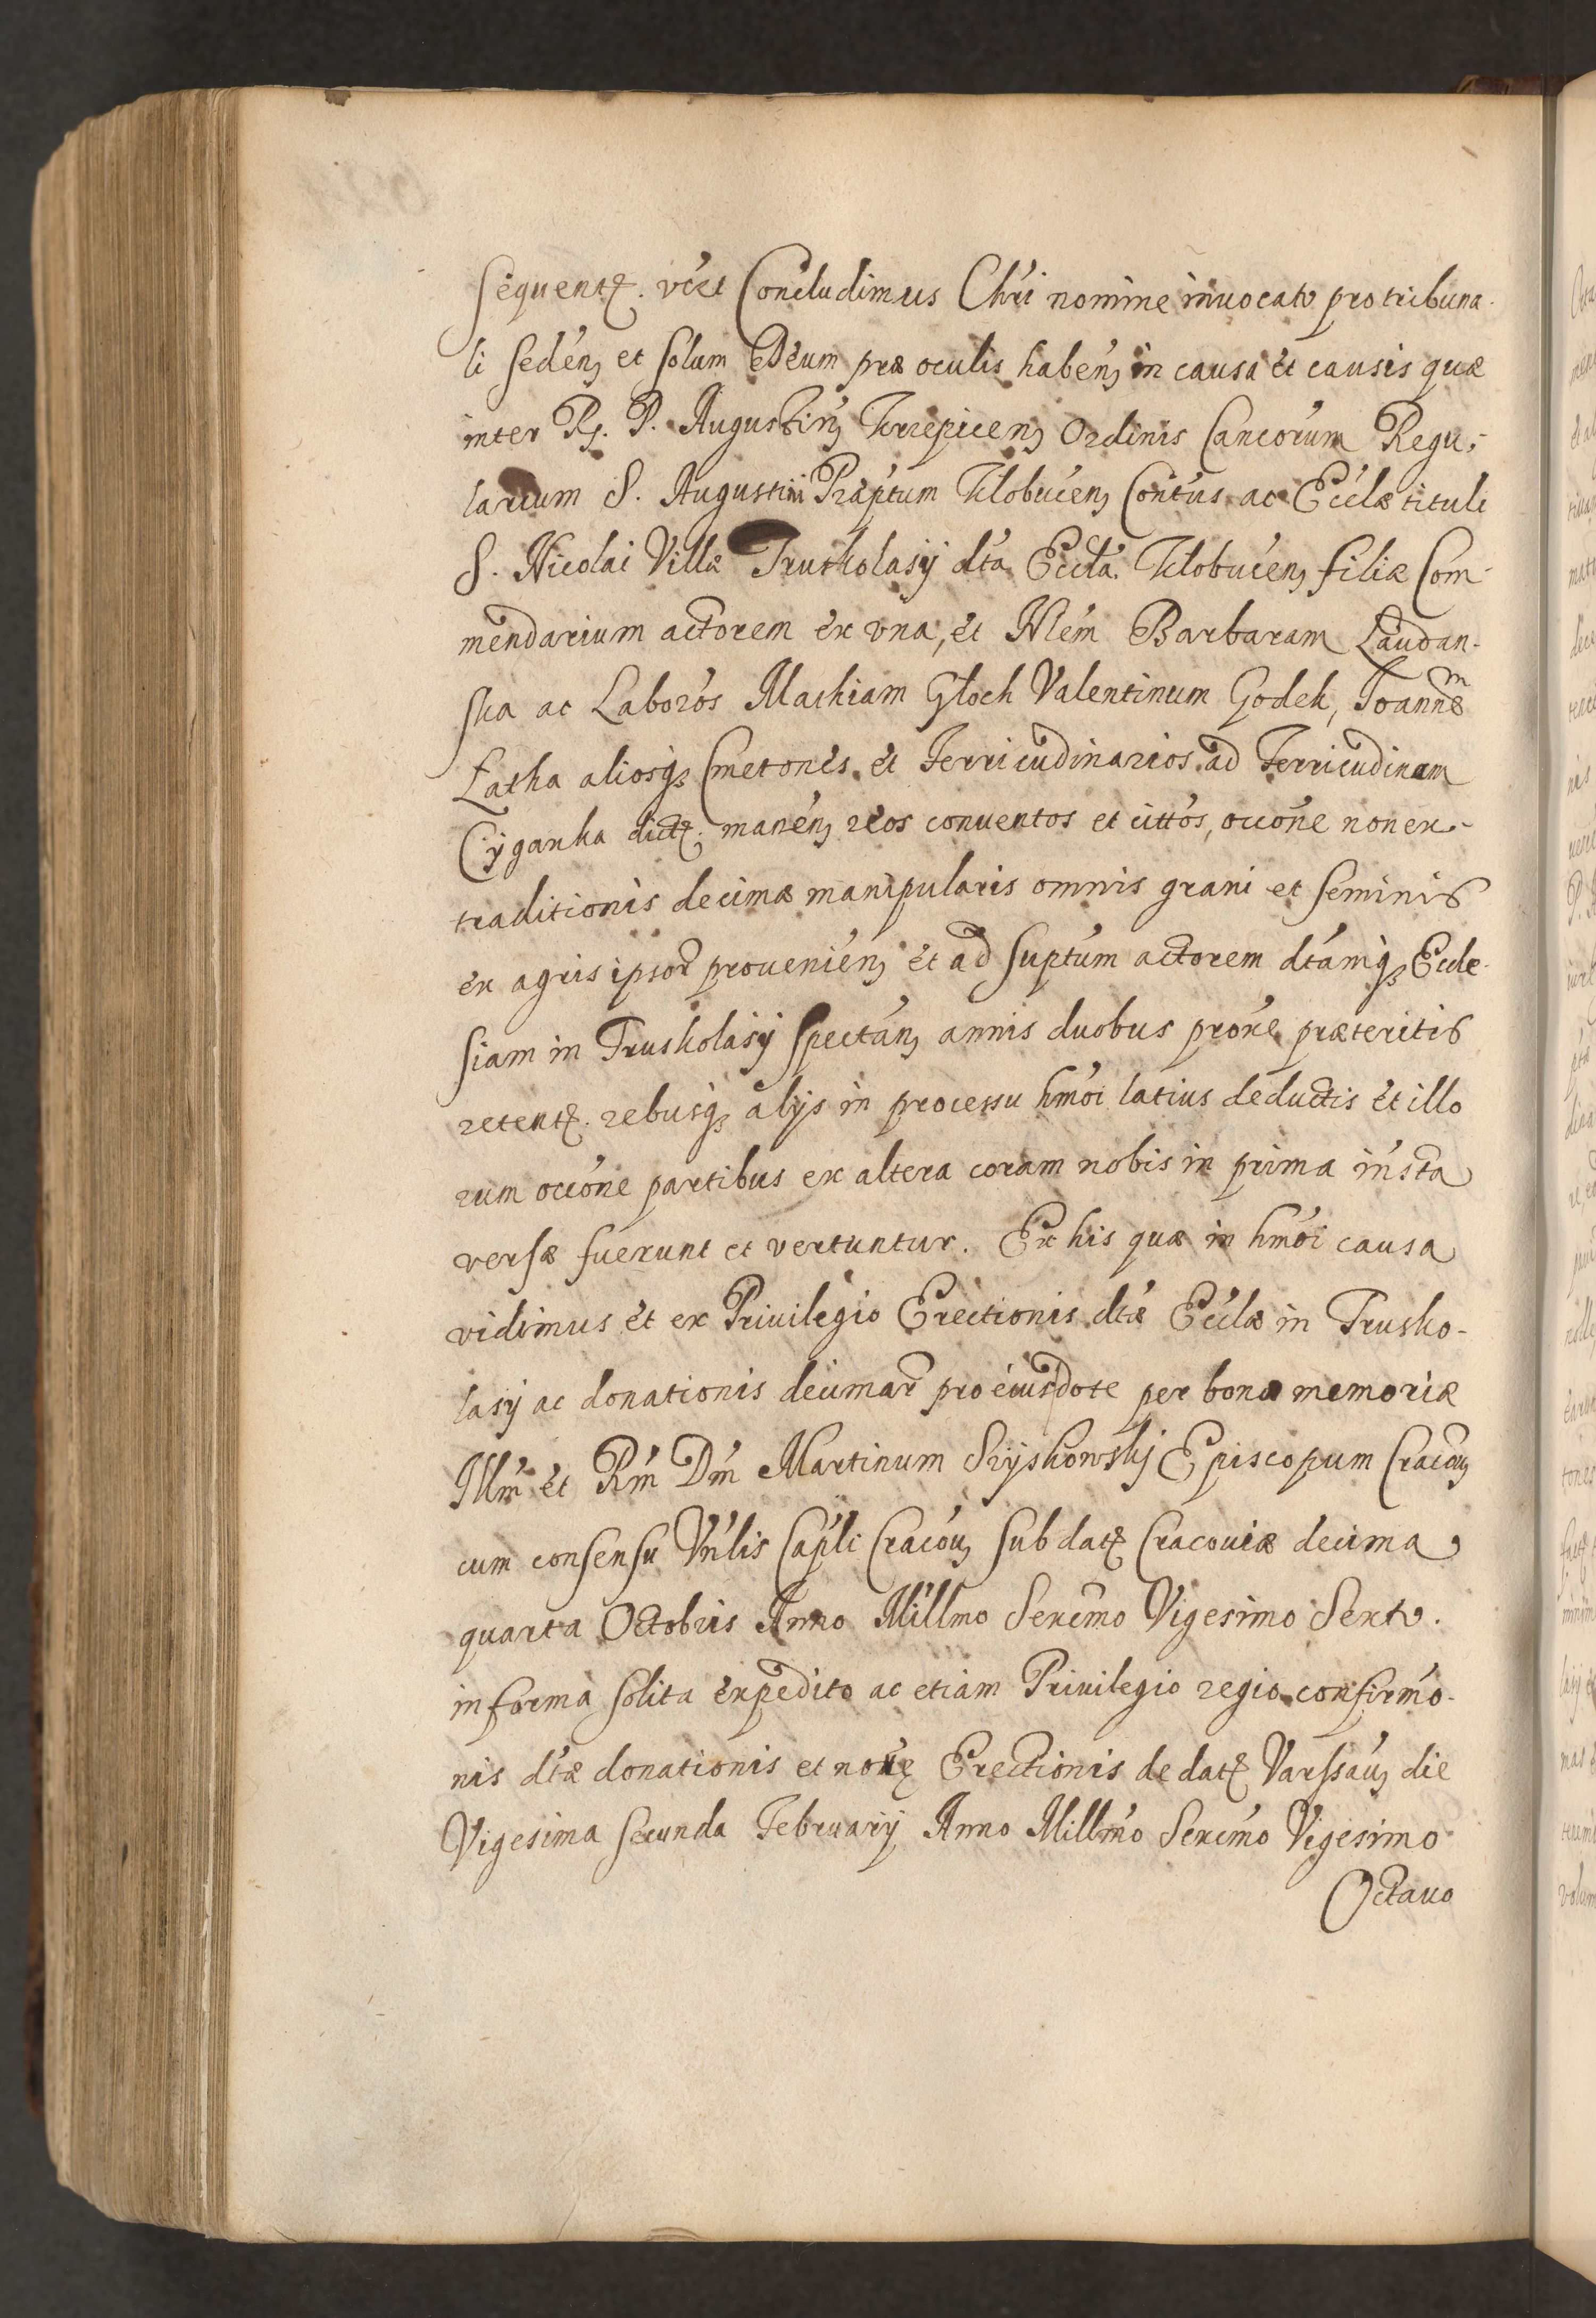 sequentę. vċėt Concludimus Chri nomine inuocato pro tribuna-
li seden, et solum Deum præ oculis haben, in causa et causis quæ
inter R. P. Augustin, Krzepicen, Ordinis Cancorum Regu-
larium S. Augustini Præptum Klobucen, Contus ac Ecclæ tituli
S. Nicolai Villæ Truskolasÿ dta Eccla Klobucen, filiæ Com-
mendarium actorem ex vna, et Nlem Barbaram Laudan-
ska ac Laborós Mathiam Gloch Valentinum Godek, Joannem
Łatka aliosq, Cmetones et Ferricudinarios ad Ferricudinam
Cyganka dictę. manen, reos conuentos et cittos, occone non ex-
traditionis decimæ manipularis omnis grani et seminis
ex agris ipsor prouenien, et ad suptum actorem dtamq, Eccle-
siam in Truskolasÿ spectan, annis duobus prone præteritis
retentę. rebusq, alÿs in processu hmoi latius deductis et illo
rum occone partibus ex altera coram nobis in prima insta
versæ fuerunt et vertuntur. Ex his quæ in hmoi causa
vidimus et ex Priuilegio Erectionis dtæ Ecclæ in Trusko-
lasÿ ac donationis decimar pro eiusd dote per bonæ memoriæ
Illm et Rm Dm Martinum Szÿskowskj Episcopum Cracou,
cum consensu Vnlis Capli Cracou, sub datę Cracouiæ decima
quarta Octobris Anno Millmo Sexcmo Vigesimo Sexto.
in forma solita expedito ac etiam Priuilegio regio confirmo-
nis dtæ donationis et nouę Erectionis de datę Varssau, die
Vigesima secunda Februarÿ Anno Millmo Sexcmo Vigesimo
Octauo